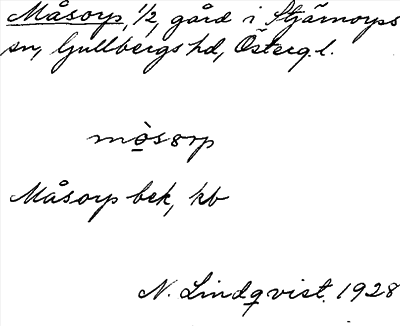 Måsorp, 1/2, gård i Stjärnorps
sn, Gullbergs hd, Österg.l.
mò̲sơrp
Måsorp bek, kb
N. Lindqvist. 1928